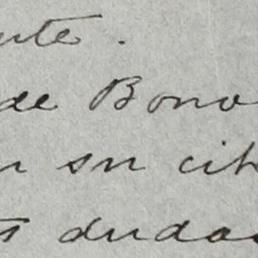 de Bono
su cit
dudas